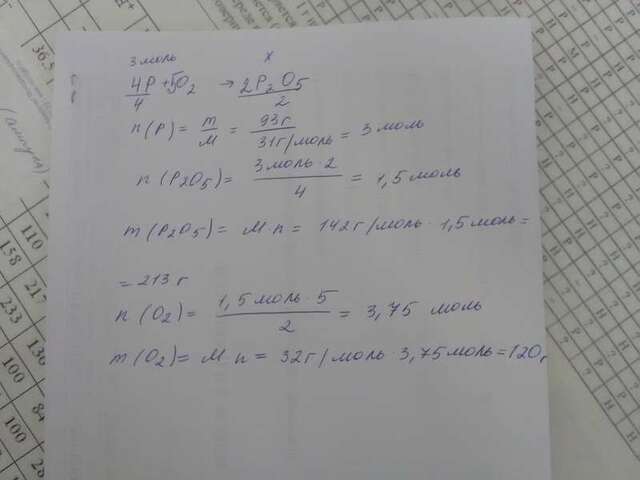 3 моль x
4P + 5O2 → 2P2O5
4 2
n(P) = m/M = 93г/31г/моль = 3 моль
n(P2O5) = 3 моль·2/4 = 1,5 моль
m(P2O5) = M·n = 142г/моль·1,5моль=
= 213 г
n(O2) = 1,5 моль·5/2 = 3,75 моль
m(O2) = M·n = 32г/моль·3,75моль=120
36,5
(
110
158
21
233
130
100
100
84
20